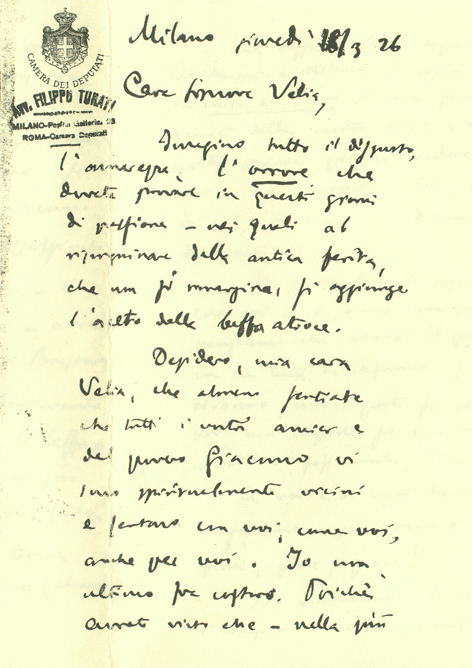 CAMERA DEI DEPUTATI
Avv. FILIPPO TURATI
MILANO - Portici Galleria 23
ROMA - Camera Deputati
Milano giovedì 18/3 26
Cara signora Velia,
Immagino tutto il disgusto,
l'amarezza, l'orrore che
dovete provare in questi giorni
di passione – nei quali al
risanguinare della antica ferita,
che non si rimargina, si aggiunge
l'aceto della beffa atroce.
Desidero, mia cara
Velia, che almeno sentiate
che tutti i vostri amici e
del povero Giacomo vi
sono spiritualmente vicini
e sentono con voi, come voi,
anche per voi. Io non
ultimo fra costoro. Poichè
avrete visto che – nella più